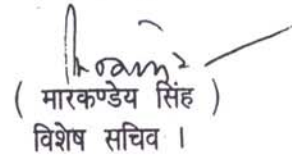 ( मारकण्डेय सिंह )
विशेष सचिव ।